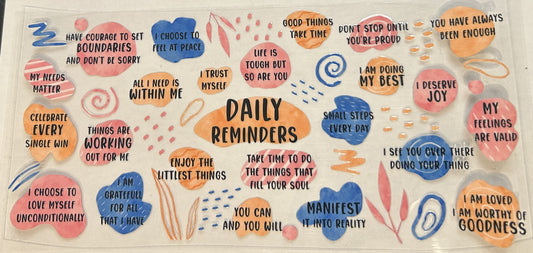 HAVE COURAGE TO SET
BOUNDARIES
AND DON'T BE SORRY
I CHOOSE TO
FEEL AT PEACE
GOOD THINGS
TAKE TIME
DON'T STOP UNTIL
YOU'RE PROUD
YOU HAVE ALWAYS
BEEN ENOUGH
LIFE IS
TOUGH BUT
SO ARE YOU
MY NEEDS
MATTER
ALL I NEED IS
WITHIN ME
I TRUST
MYSELF
I AM DOING
MY BEST
I DESERVE
JOY
CELEBRATE
EVERY
SINGLE WIN
THINGS ARE
WORKING
OUT FOR ME
DAILY
REMINDERS
SMALL STEPS
EVERY DAY
MY
FEELINGS
ARE VALID
ENJOY THE
LITTLEST THINGS
TAKE TIME TO DO
THE THINGS THAT
FILL YOUR SOUL
I SEE YOU OVER THERE
DOING YOUR THING
I CHOOSE TO
LOVE MYSELF
UNCONDITIONALLY
I AM
GRATEFUL
FOR ALL
THAT I HAVE
YOU CAN
AND YOU WILL
MANIFEST
IT INTO REALITY
I AM LOVED
I AM WORTHY OF
GOODNESS